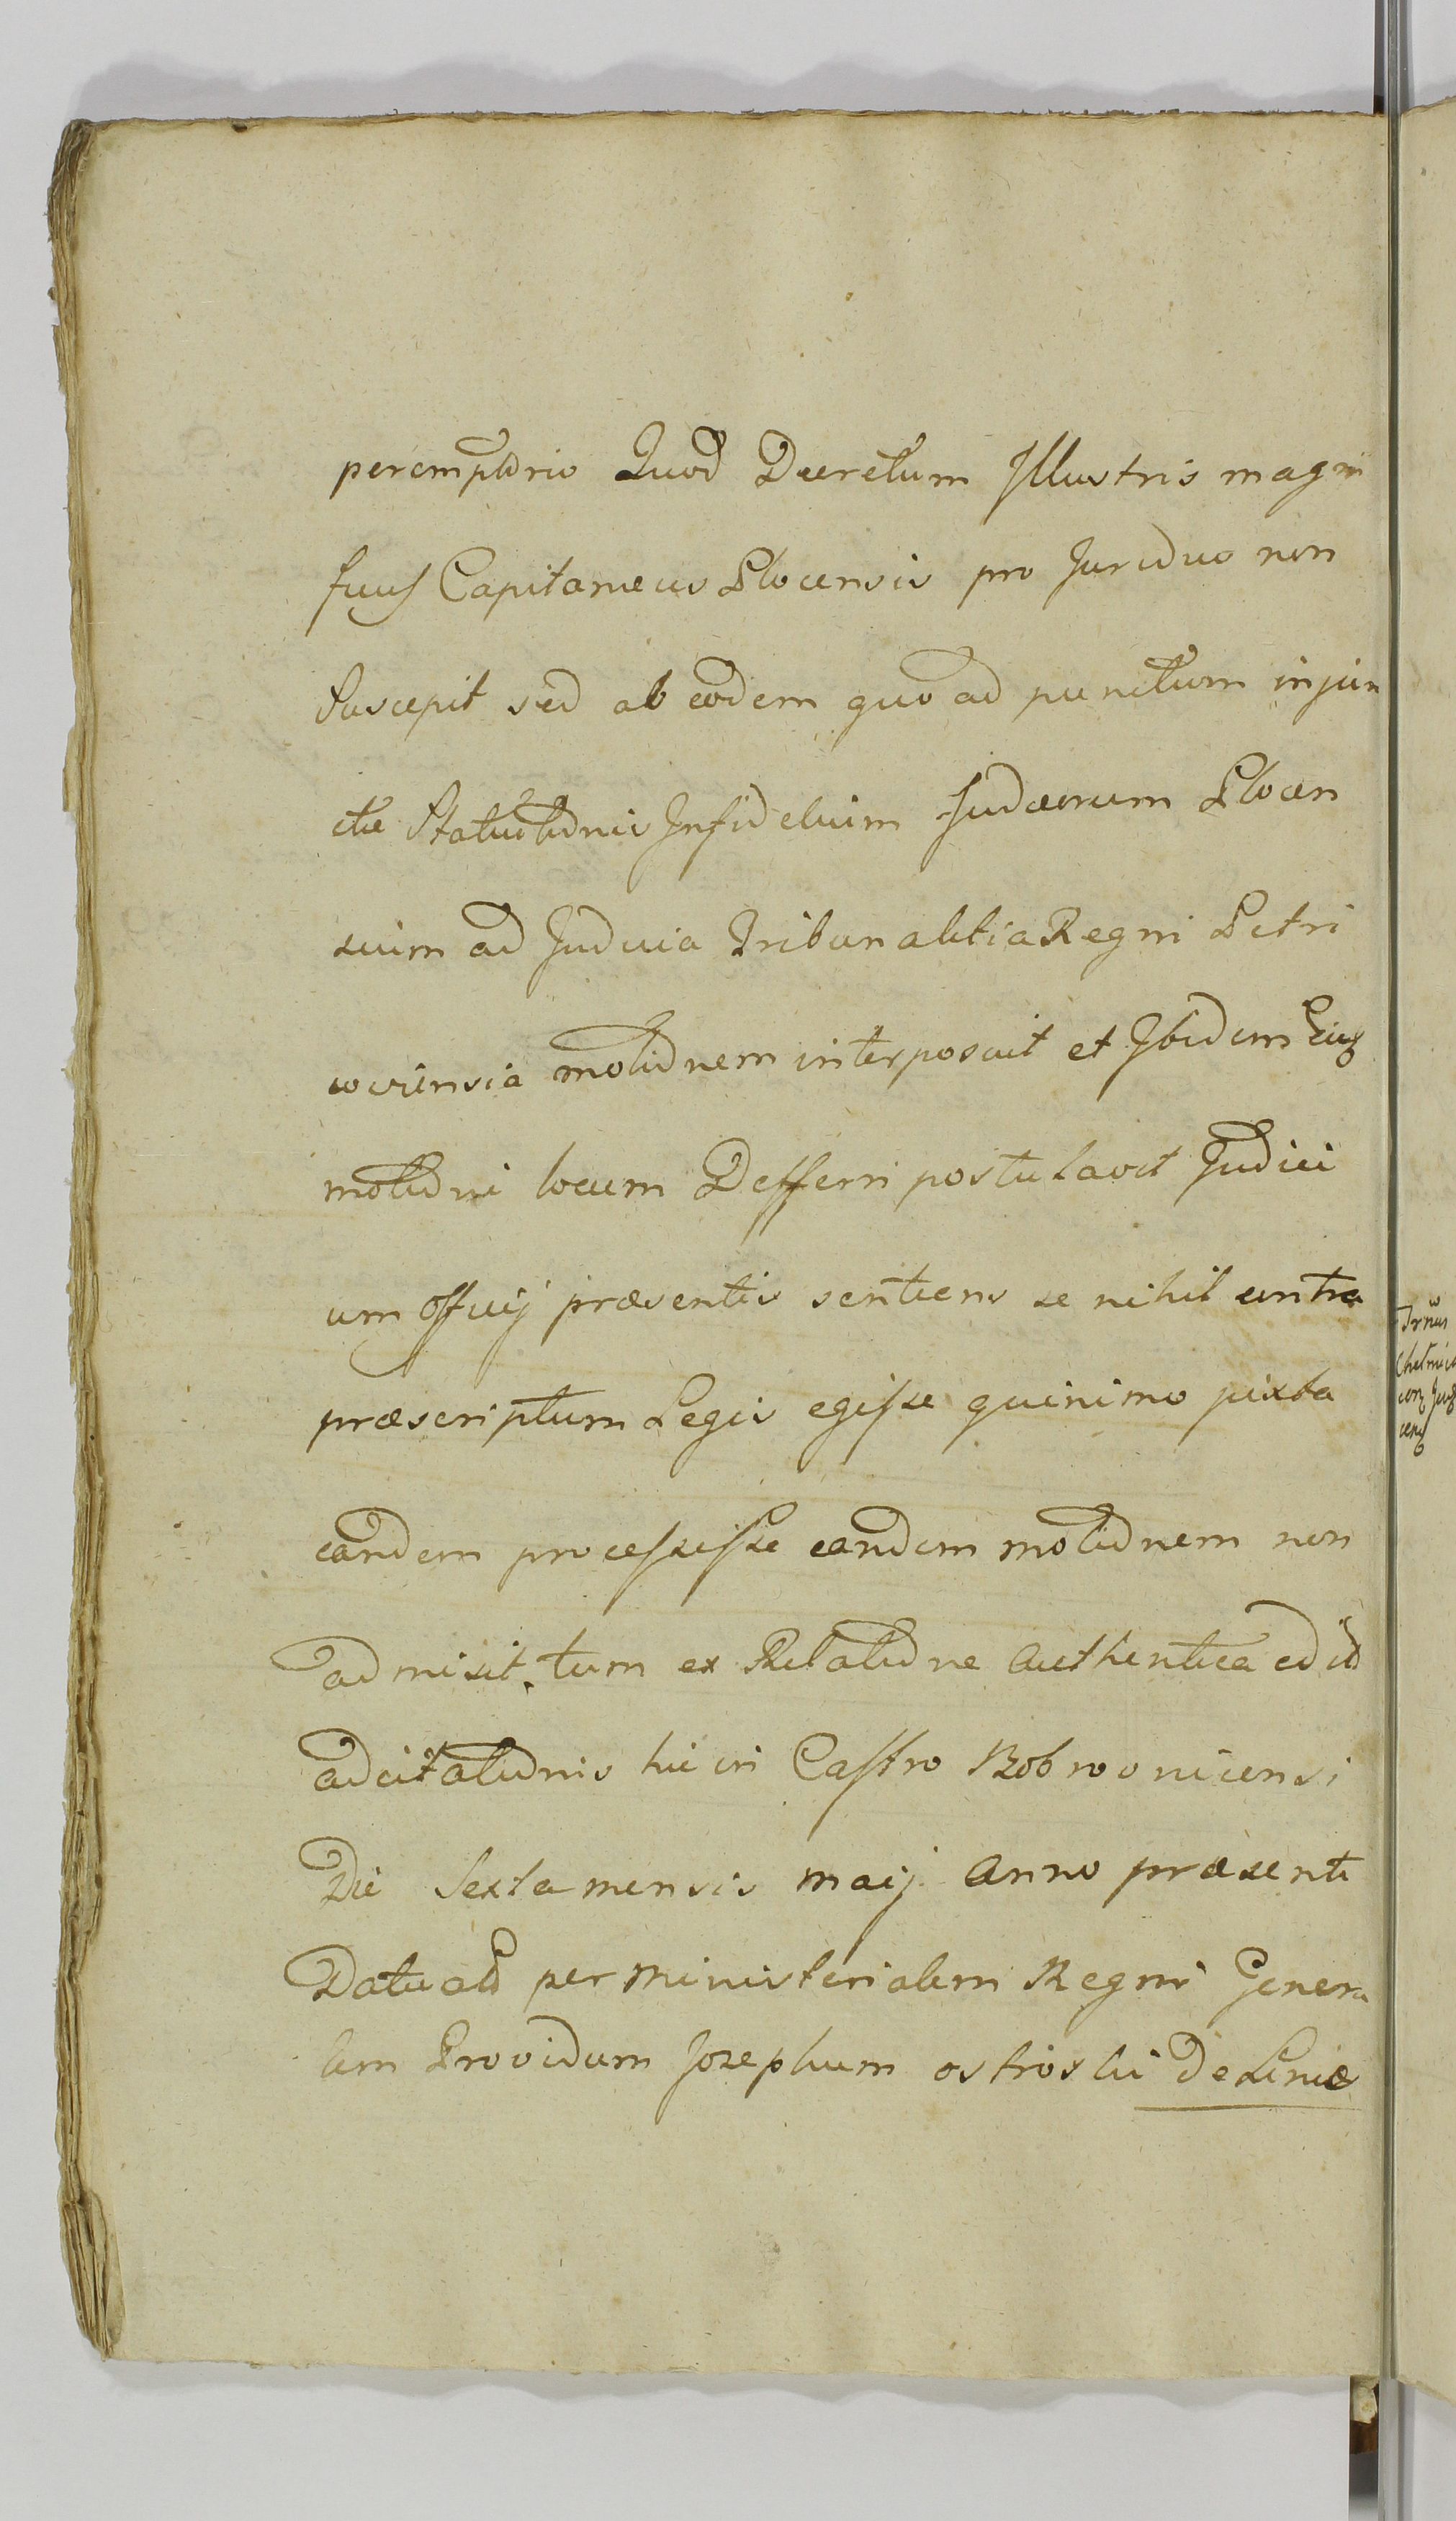 peremptorio Quod Decretum Illustris magni
ficus Capitaneus Plocensis pro Juridico non
Suscepit sed ab eodem quo ad punctum injun
ctae Statuitionis Infidelium Judaeorum Plocen
sium ad Judicia Tribunalitia Regni Petri
coviensia motionem interposuit et Ibidem Eius
motioni locum Defferri postulavit Judici
um Officij praesentis sentiens se nihil contra
praescriptum Legis egisse quinimo juxta
eandem processisse eandem motionem non
admisit. tum ex Relatione Authentica
adcitationis hic in Castro Bobrovnicensi
Die Sexta mensis maij Anno praesenti
per Ministerialem Regni Genera
lem Providum Josephum ostroski De Linie